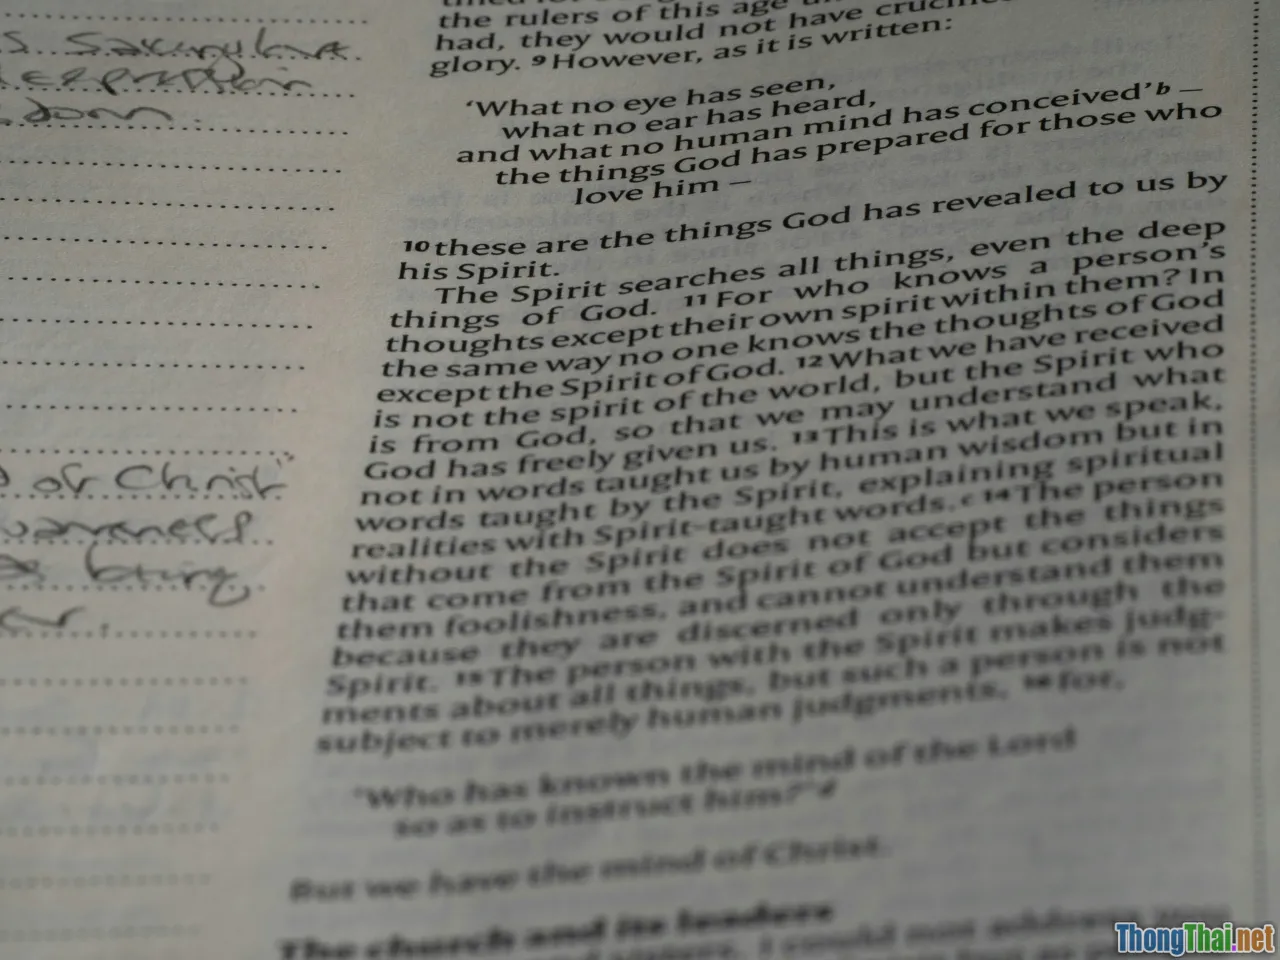 the rulers of this age
had, they would not have
glory. 9 However, as it is written:
'What no eye has seen,
what no ear has heard,
and what no human mind has conceived' b –
the things God has prepared for those who
love him –
10 these are the things God has revealed to us by
his Spirit.
The Spirit searches all things, even the deep
things of God. 11 For who knows a person's
thoughts except their own spirit within them? In
the same way no one knows the thoughts of God
except the Spirit of God. 12 What we have received
is not the spirit of the world, but the Spirit who
is from God, so that we may understand what
God has freely given us. 13 This is what we speak,
not in words taught us by human wisdom but in
words taught by the Spirit, explaining spiritual
realities with Spirit-taught words. c 14 The person
without the Spirit does not accept the things
that come from the Spirit of God but considers
them foolishness, and cannot understand them
because they are discerned only through the
Spirit. 15 The person with the Spirit makes judg-
ments about all things, but such a person is not
subject to merely human judgments, 16 for,
'Who has known the mind of the Lord
so as to instruct him?' d
But we have the mind of Christ.
The church and its leaders
of Christ
ThongThai.net